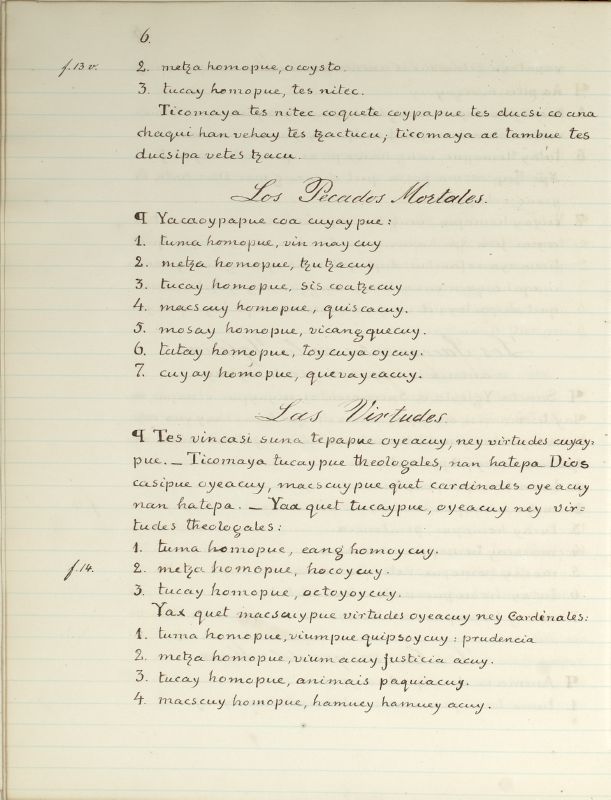 6.
f. 13 v. 2. metza homopue, ocoysto.
3. tucay homopue, tes nitec.
Ticomaya tes nitec coquete coypapue tes ducsi co ana
chaqui han vehay tes tzactucu; ticomaya ae tambue tes
ducsipa vetes tzacu.
Los Pecados Mortales.
¶ Yacaoypapue coa cuyaypue:
1. tuma homopue, vin may cuy
2. metza homopue, tzutzacuy
3. tucay homopue, sis coatzecuy
4. macscuy homopue, quiscacuy.
5. mosay homopue, vicangquecuy.
6. tatay homopue, toycuyaoycuy.
7. cuyay homopue, quevayeacuy.
Las Virtudes.
¶ Tes vincasi suna tepapue oyeacuy, ney virtudes cuyay=
pue. _ Ticomaya tucaypue theologales, nan hatepa Dios
casipue oyeacuy, macscuypue quet cardinales oyeacuy
nan hatepa. _ Yax quet tucaypue, oyeacuy ney vir=
tudes theologales:
1. tuma homopue, eang homoycuy.
f. 14. 2. metza homopue, hocoycuy.
3. tucay homopue, octoyoycuy.
Yax quet macscuypue virtudes oyeacuy ney Cardinales:
1. tuma homopue, viumpue quipsoycuy: prudencia
2. metza homopue, vium acuy justicia acuy.
3. tucay homopue, animais paquiacuy.
4. macscuy homopue, hamuey hamuey acuy.